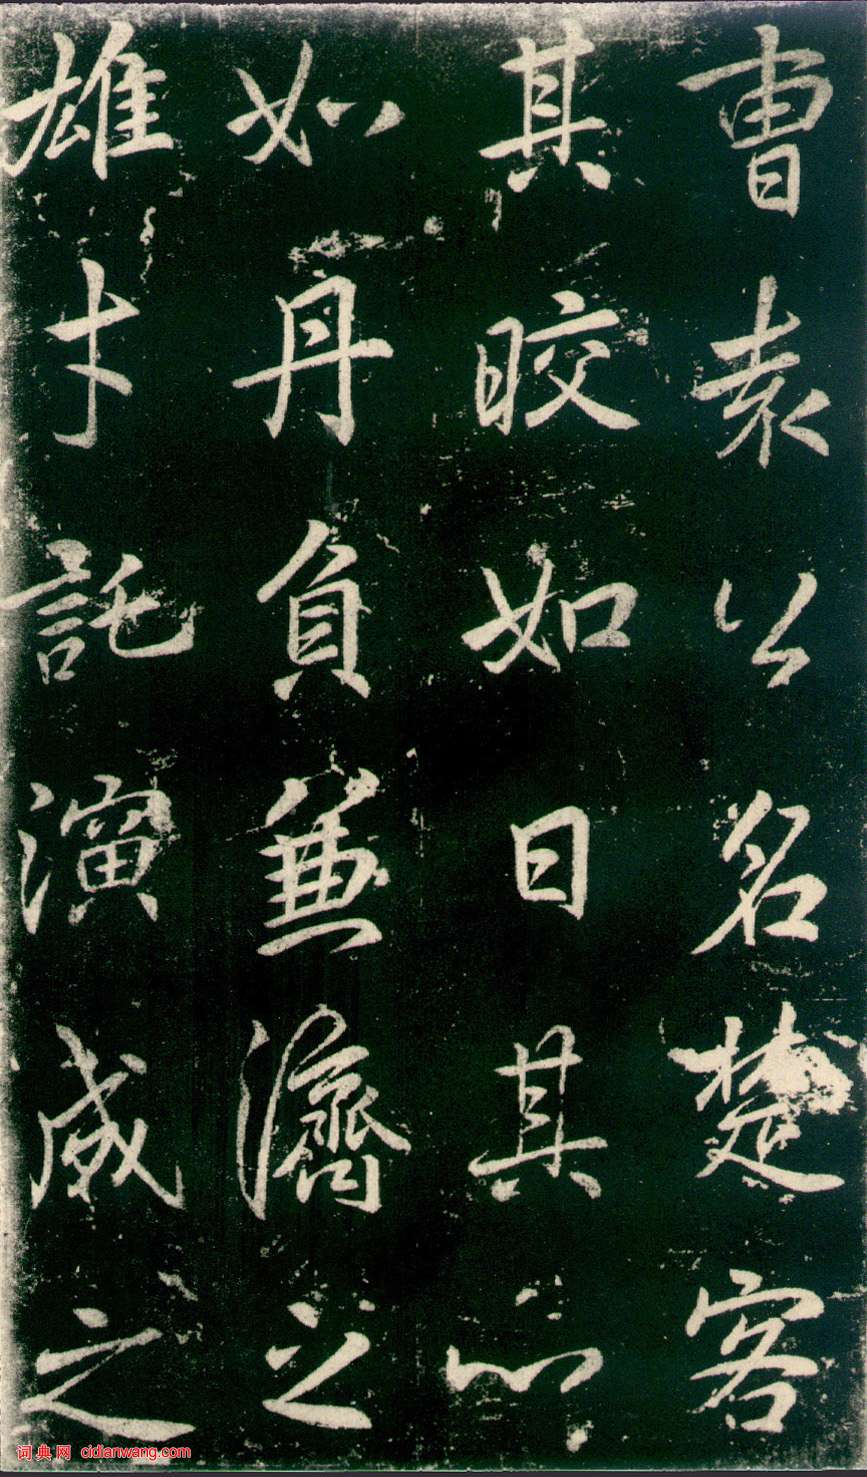 曹袁以名楚客
其皎如日其心
如丹負兼濟之
雄才託演威之
词典网 cidianwang.com